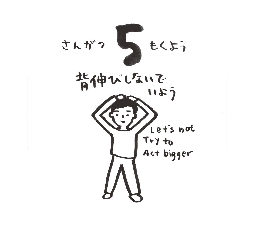 さんがつ 5 もくよう
背伸びしないで
いよう
Let's not
Try to
Act bigger